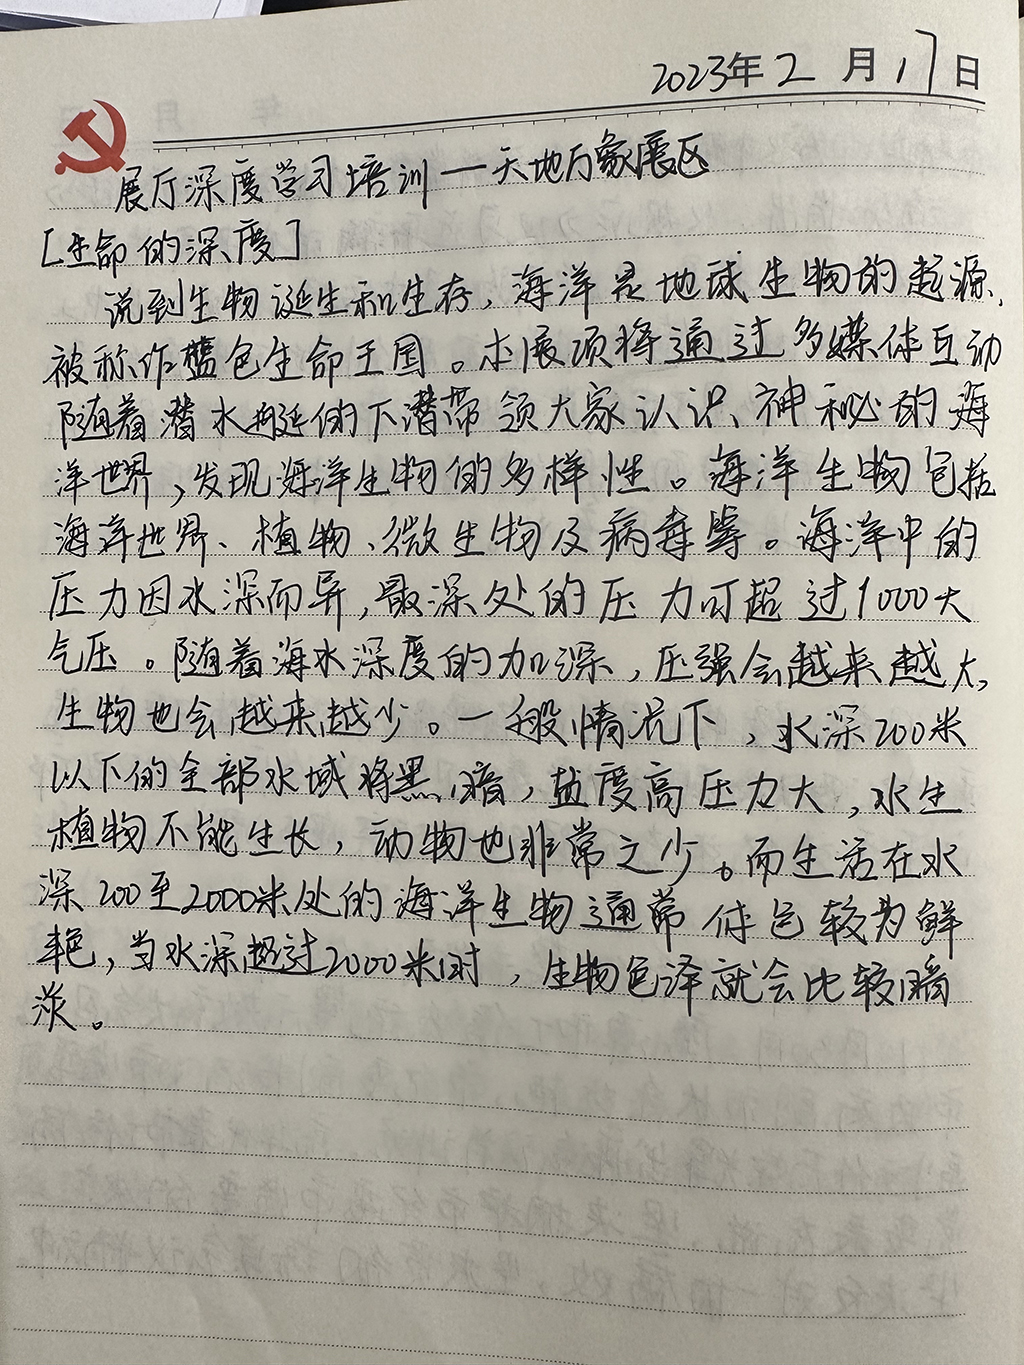 2023年2月17日
展厅深度学习培训—天地万象展区
[生命的深度]
说到生物诞生和生存，海洋是地球生物的起源，
被称作蓝色生命王国。本展项将通过多媒体互动
随着潜水艇的下潜带领大家认识、神秘的海
洋世界，发现海洋生物的多样性。海洋生物包括
海洋世界、植物、微生物及病毒等。海洋中的
压力因水深而异，最深处的压力可超过1000大
气压。随着海水深度的加深，压强会越来越大，
生物也会越来越少。一般情况下，水深200米
以下的全部水域将黑暗，盐度高压力大，水生
植物不能生长，动物也非常之少。而生活在水
深200至2000米处的海洋生物通常体色较为鲜
艳，当水深超过2000米时，生物色泽就会比较暗
淡。